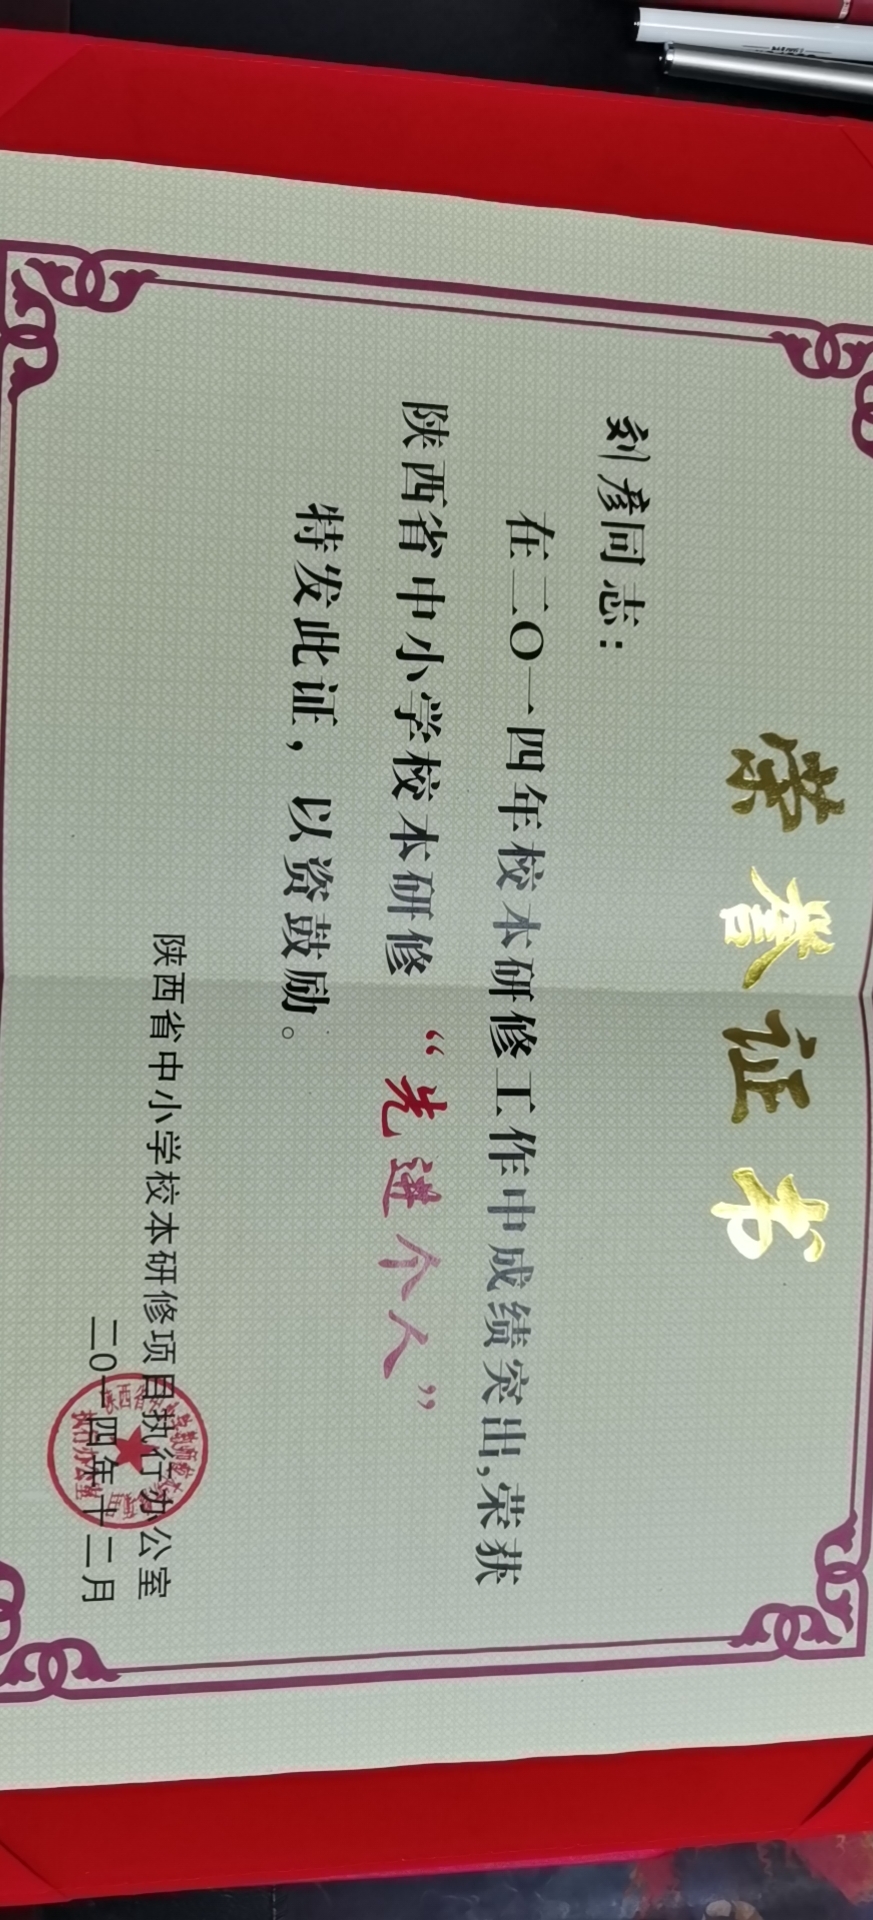 荣誉证书
刘彦同志：
在二〇一四年校本研修工作中成绩突出,荣获
陕西省中小学校本研修“先进个人”
特发此证，以资鼓励。
陕西省中小学校本研修项目执行办公室
二〇一四年十二月
执行办公室